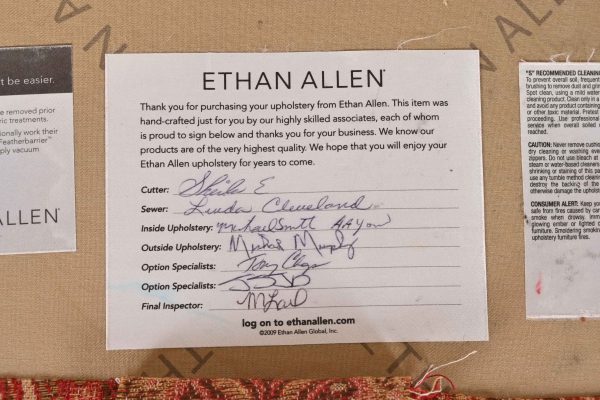 t be easier.
e removed prior
ric treatments.
ionally work their
Featherbarrier™
ply vacuum
ALLEN®
ETHAN ALLEN®
Thank you for purchasing your upholstery from Ethan Allen. This item was
hand-crafted just for you by our highly skilled associates, each of whom
is proud to sign below and thanks you for your business. We know our
products are of the very highest quality. We hope that you will enjoy your
Ethan Allen upholstery for years to come.
Cutter: Sheila E
Sewer: Linda Cleveland
Inside Upholstery: Michael Smith
Outside Upholstery: Michael Murphy
Option Specialists: Tony
Option Specialists:
Final Inspector:
log on to ethanallen.com
©2009 Ethan Allen Global, Inc.
"S" RECOMMENDED CLEANING
To prevent overall soil, frequent
brushing to remove dust and grim
Spot clean, using a mild water
cleaning product. Clean only in a
and avoid any product containing
or other toxic material. Pretest
proceeding. Use professional
service when overall soiled
reached.
CAUTION: Never remove cushion
dry cleaning or washing
zippers. Do not use bleach at
steam or water-based cleaners
shrinking or staining of this pa
use any tumble method cleaning
destroy the backing of the
otherwise damage the upholste
CONSUMER ALERT: Keep you
safe from fires caused by care
smoke when drowsy. Imm
glowing ember or lighted c
furniture. Smoldering smoking
upholstery furniture fires.